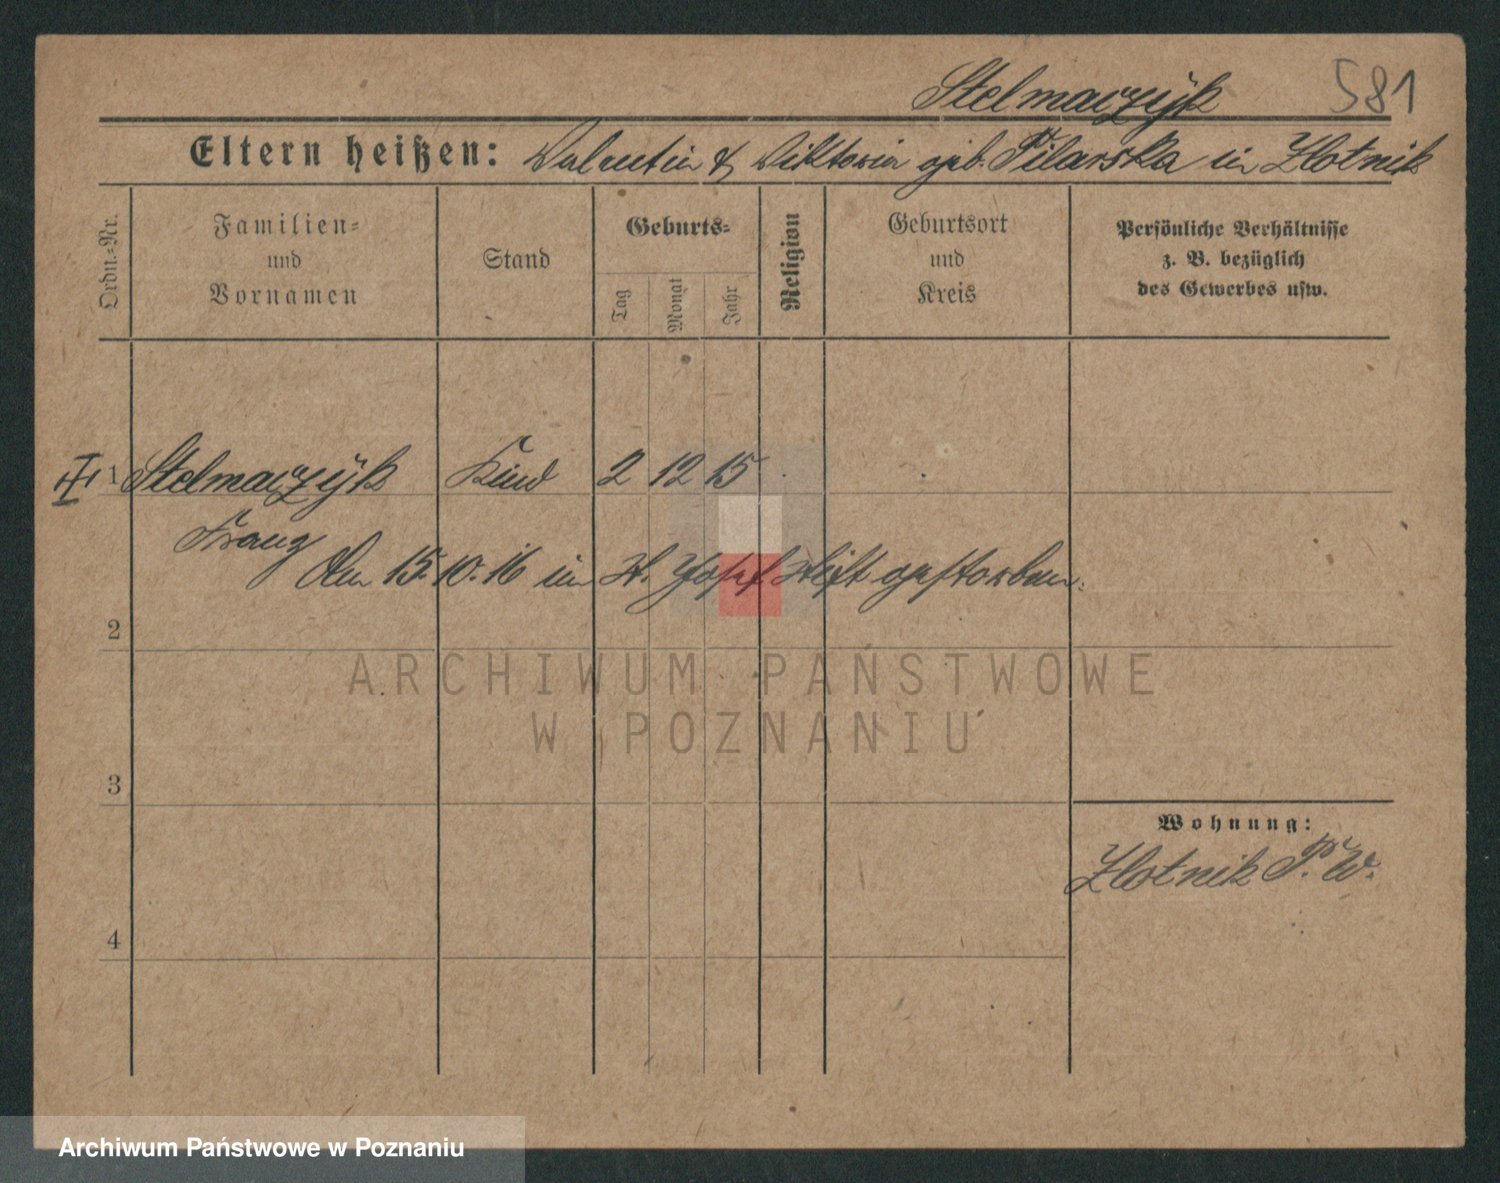 Stelmaczÿk 581
Eltern heißen: Valentin & Viktoria geb. Pilarska in Zlotnik
Ordn.=Nr.
Familien=
und
Vornamen
Stand
Geburts=
Tag
Monat
Jahr
Religion
Geburtsort
und
Kreis
Persönliche Verhältnisse
z. B. bezüglich
des Gewerbes usw.
1 Stelmaczÿk Kind 2 12 15
Franz
den 15. 10. 16 im St. Josef Stift gestorben.
2
ARCHIWUM PAŃSTWOWE
W POZNANIU
3
Wohnung:
Zlotnik P. W.
4
Archiwum Państwowe w Poznaniu